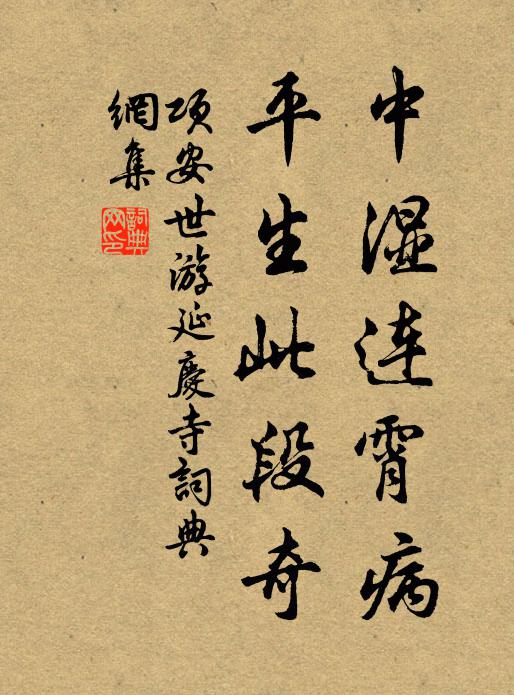 中湿连霄病
平生此段奇
项安世游延慶寺詞典
網集
詞典
网印